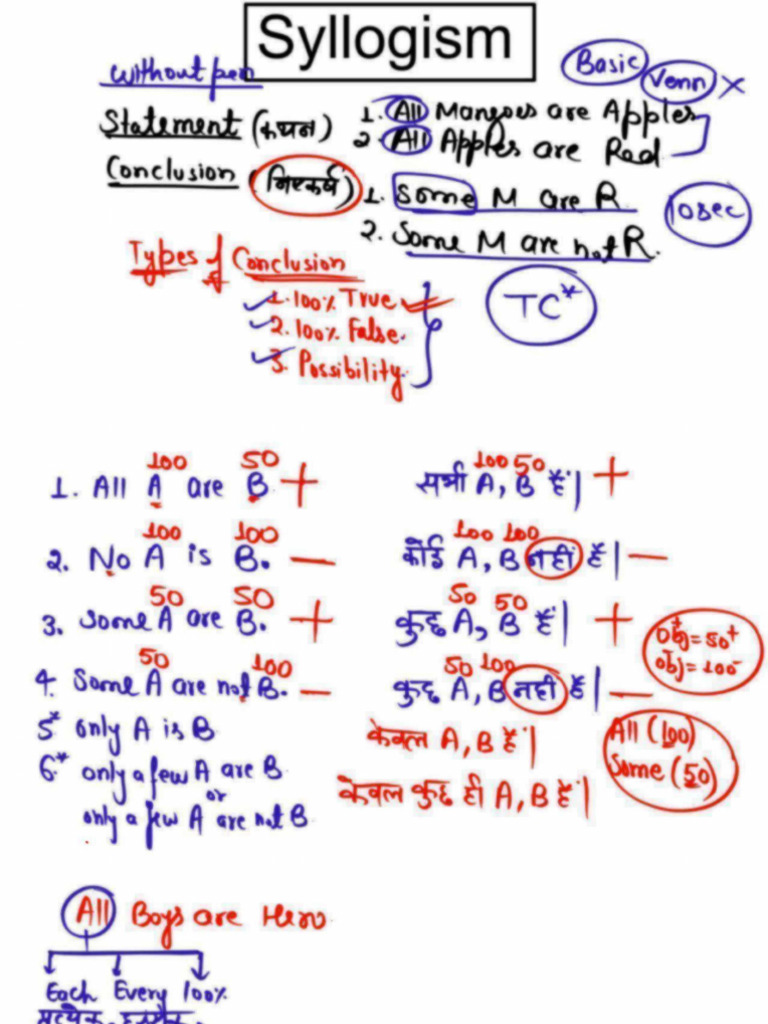 Syllogism
without pen
Basic
Venn X
Statement (कथन)
1. All Mangoes are Apples
2. All Apples are Red
Conclusion (निष्कर्ष)
1. Some M are R
2. Some M are not R.
10sec
Types of Conclusion
1. 100% True
2. 100% False.
3. Possibility.
TC*
100 50
1. All A are B +
100 50
सभी A, B हैं| +
100 100
2. No A is B. —
100 100
कोई A, B नहीं है| —
50 50
3. Some A are B. +
50 50
कुछ A, B हैं| +
50 100
4. Some A are not B. —
50 100
कुछ A, B नहीं है| —
Obj+ = 50+
Obj- = 100-
5* only A is B
केवल A, B हैं|
All (100)
Some (50)
6* only a few A are B
or
only a few A are not B
केवल कुछ ही A, B हैं|
All Boys are Hero
Each Every 100%
प्रत्येक